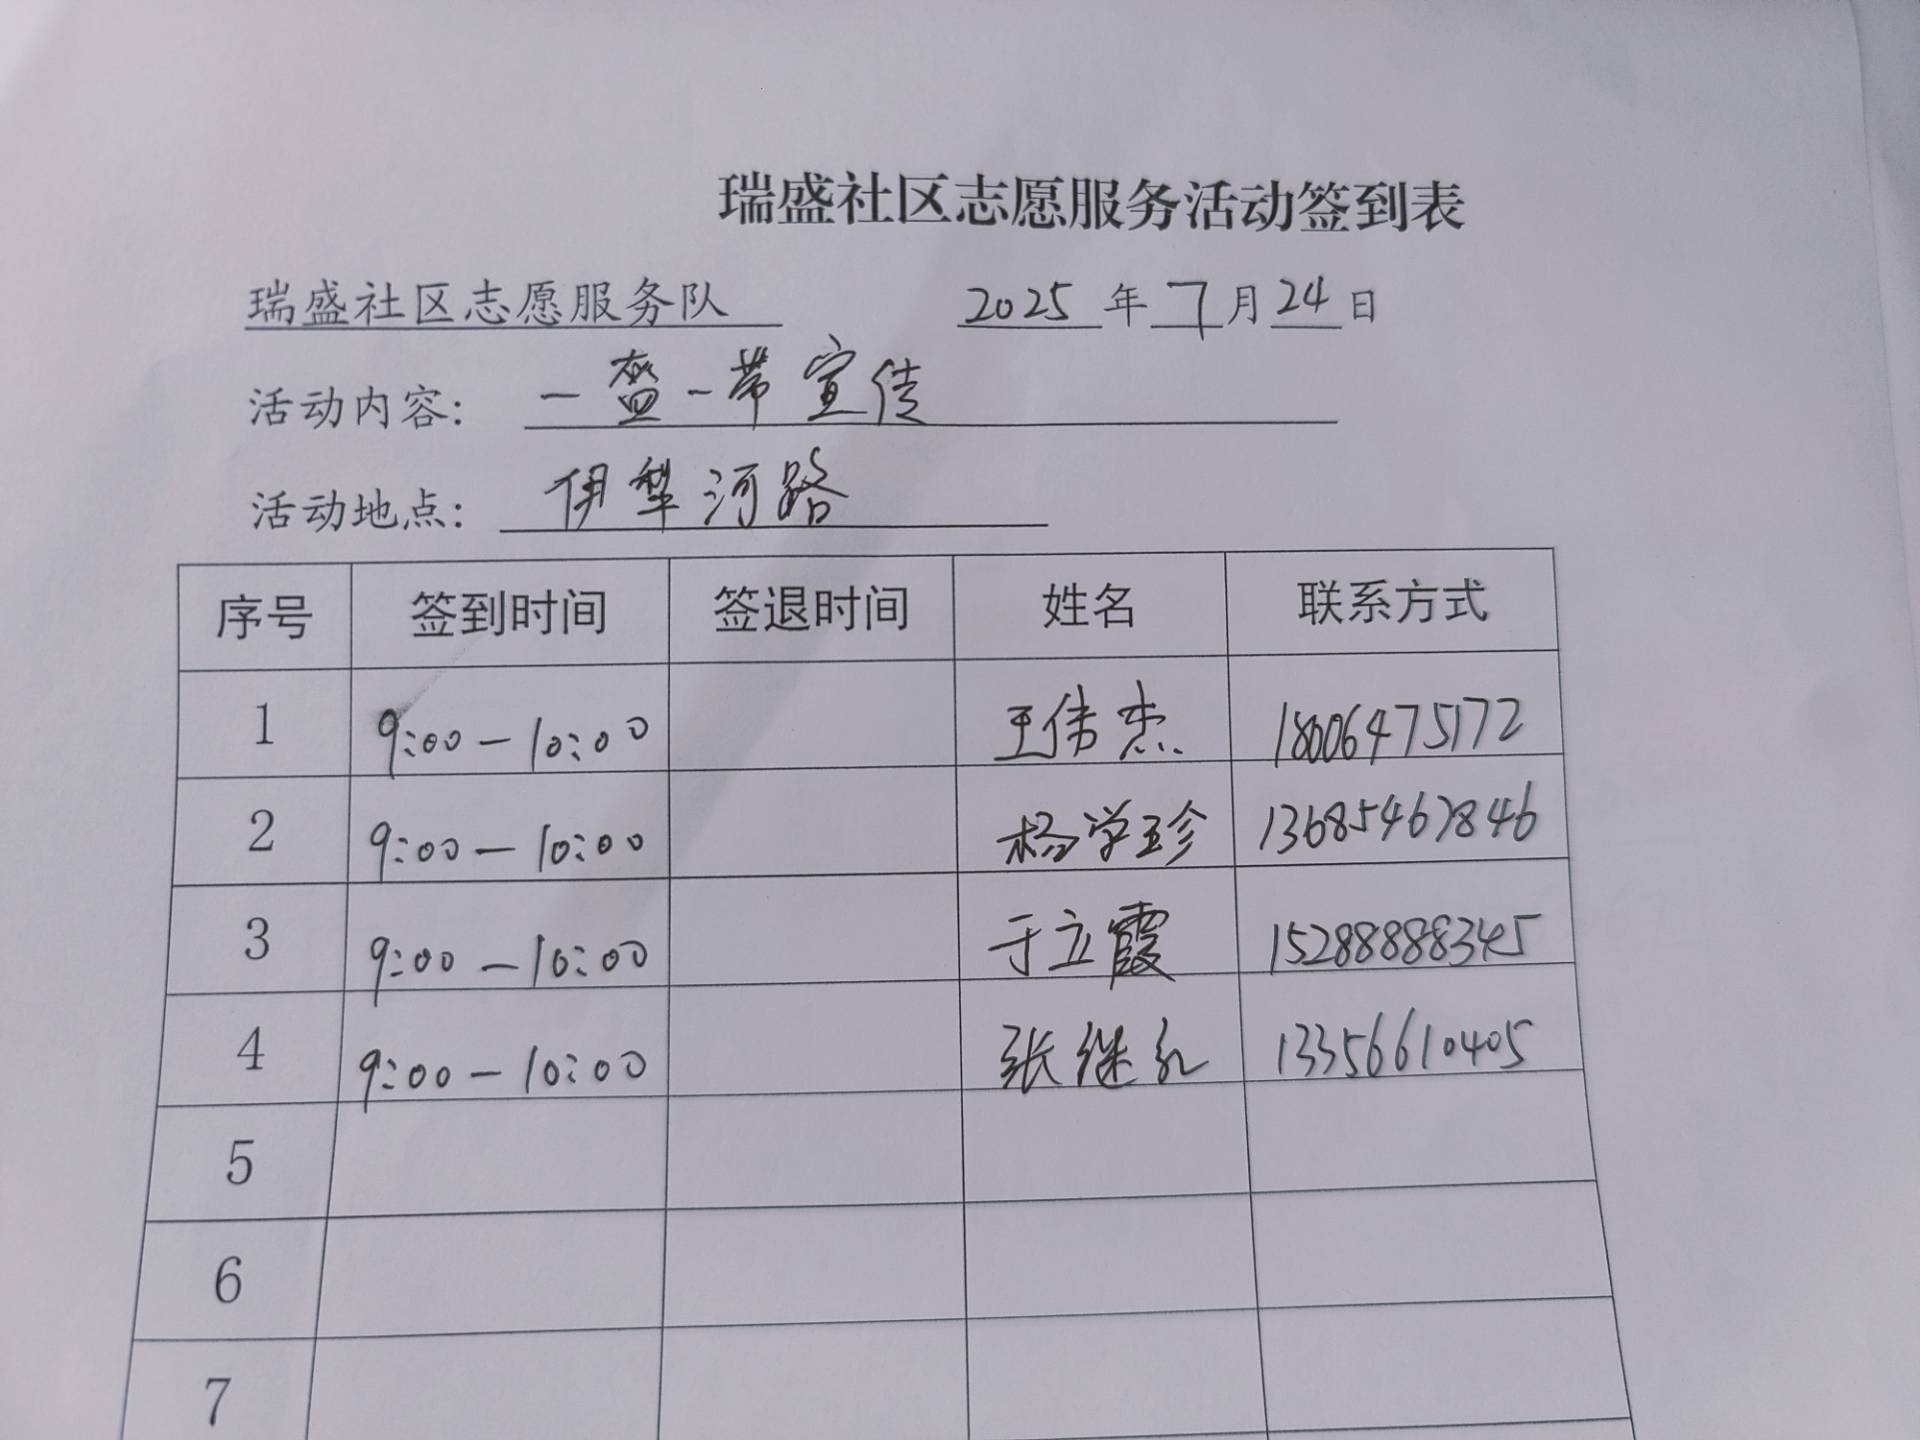 瑞盛社区志愿服务活动签到表
瑞盛社区志愿服务队 2025年7月24日
活动内容: 一盔一带宣传
活动地点: 伊犁河路
序号 签到时间 签退时间 姓名 联系方式
1 9:00-10:00 王伟杰 18006475172
2 9:00-10:00 杨学珍 13685467846
3 9:00-10:00 于立霞 15288888345
4 9:00-10:00 张继 13356610405
5
6
7